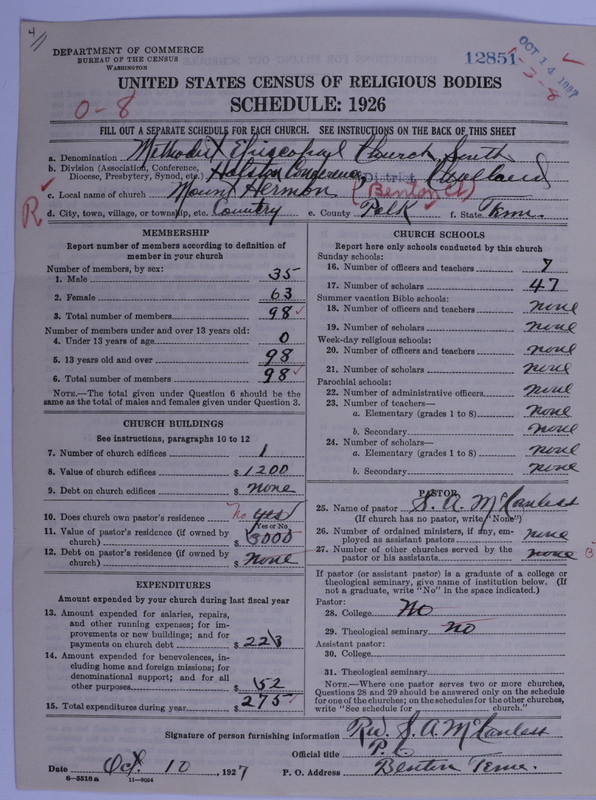 4
DEPARTMENT OF COMMERCE
BUREAU OF THE CENSUS
WASHINGTON
12851
OCT 14 1927
1-3-8
UNITED STATES CENSUS OF RELIGIOUS BODIES
SCHEDULE: 1926
0-8
FILL OUT A SEPARATE SCHEDULE FOR EACH CHURCH. SEE INSTRUCTIONS ON THE BACK OF THIS SHEET
a. Denomination Methodist Episcopal Church South
b. Division (Association, Conference, Diocese, Presbytery, Synod, etc.) Holston Conference District Cleveland
c. Local name of church Mount Hermon (Benton Ct)
R
d. City, town, village, or township, etc. Country e. County Polk f. State Tenn.
MEMBERSHIP
Report number of members according to definition of
member in your church
Number of members, by sex:
1. Male 35
2. Female 63
3. Total number of members 98
Number of members under and over 13 years old:
4. Under 13 years of age 0
5. 13 years old and over 98
6. Total number of members 98
NOTE.—The total given under Question 6 should be
same as the total of males and females given under Question 3.
CHURCH BUILDINGS
See instructions, paragraphs 10 to 12
7. Number of church edifices 1
8. Value of church edifices $ 1200
9. Debt on church edifices $ None
10. Does church own pastor's residence No yes
Yes or No
11. Value of pastor's residence (if owned by
church) $ 3000
12. Debt on pastor's residence (if owned by
church) $ None
EXPENDITURES
Amount expended by your church during last fiscal year
13. Amount expended for salaries, repairs,
and other running expenses; for im-
provements or new buildings; and for
payments on church debt $ 223
14. Amount expended for benevolences, in-
cluding home and foreign missions; for
denominational support; and for all
other purposes $ 52
15. Total expenditures during year $ 275
CHURCH SCHOOLS
Report here only schools conducted by this church
Sunday schools:
16. Number of officers and teachers 7
17. Number of scholars 47
Summer vacation Bible schools:
18. Number of officers and teachers none
19. Number of scholars none
Week-day religious schools:
20. Number of officers and teachers none
21. Number of scholars none
Parochial schools:
22. Number of administrative officers none
23. Number of teachers—
a. Elementary (grades 1 to 8) none
b. Secondary none
24. Number of scholars—
a. Elementary (grades 1 to 8) none
b. Secondary none
PASTOR
25. Name of pastor S. A. McCanless
(If church has no pastor, write "None")
26. Number of ordained ministers, if any, em-
ployed as assistant pastors none
27. Number of other churches served by the
pastor or his assistants none
If pastor (or assistant pastor) is a graduate of a college or
theological seminary, give name of institution below. (If
not a graduate, write "No" in the space indicated.)
Pastor:
28. College No
29. Theological seminary No
Assistant pastor:
30. College
31. Theological seminary
NOTE.—Where one pastor serves two or more churches,
Questions 28 and 29 should be answered only on the schedule
for one of the churches; on the schedules for the other churches,
write "See schedule for church."
Signature of person furnishing information Rev. S. A. McCanless
Official title P. C.
Date Oct 10, 1927 P. O. Address Benton Tenn.
8-5518a 11-9054